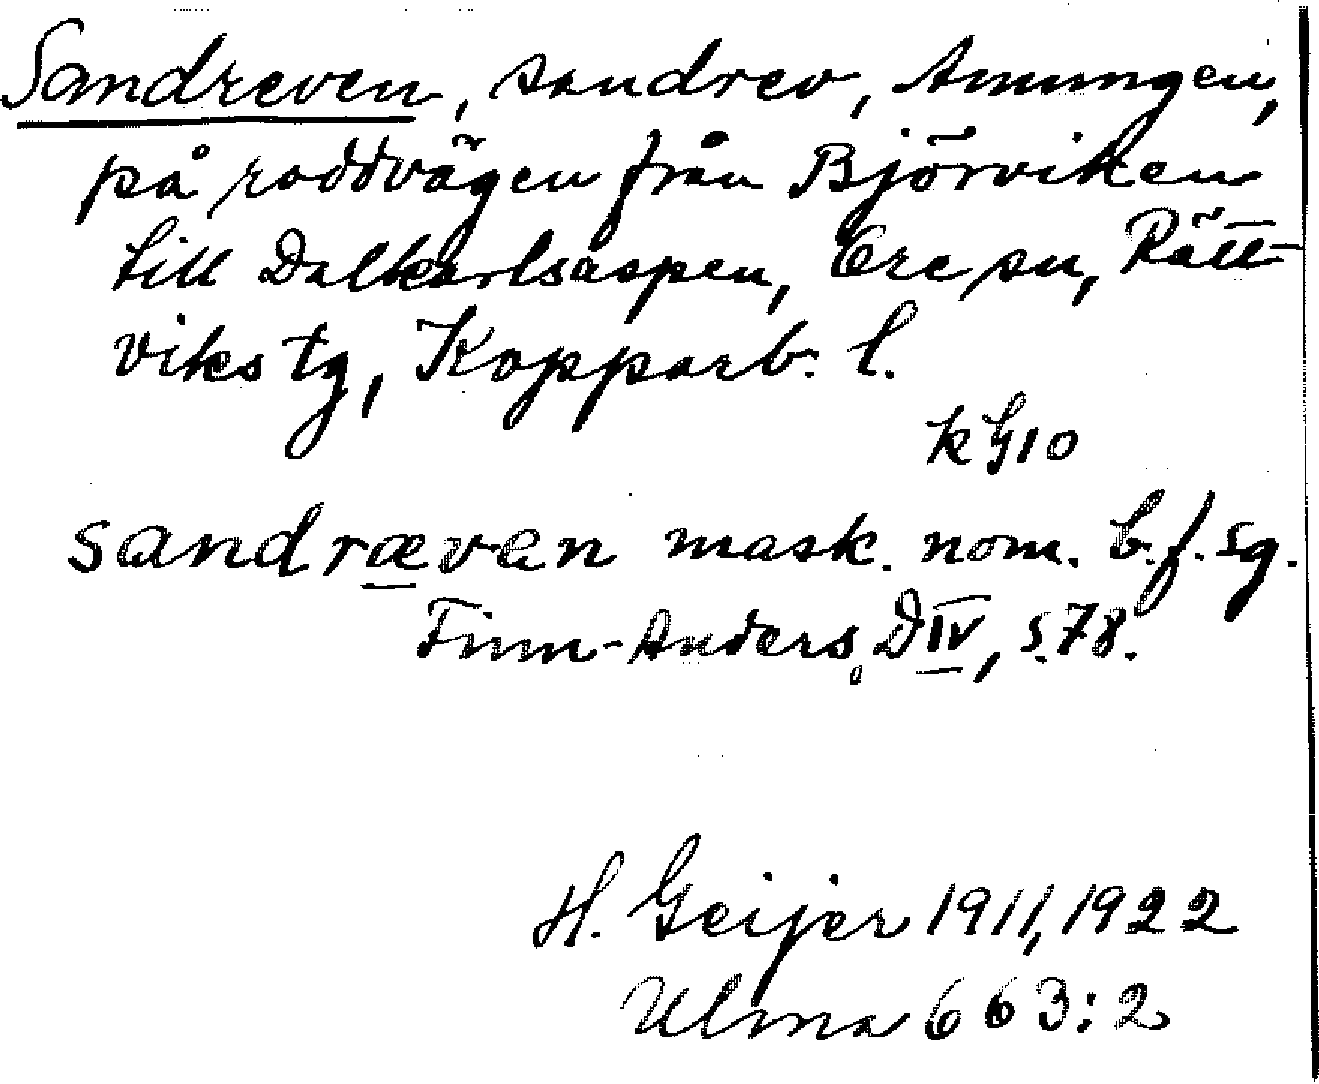 Sandreven, sandrev, Amungen,
på roddvägen från Björviken
till Dalkarlsaspen, Ore sn, Rätt-
viks tg, Kopparb. l.
k G 10
sandræven mask. nom. b.f. sg.
Finn-Anders, D IV, s. 78.
H. Geijer 1911, 1922
Ulma 663:2